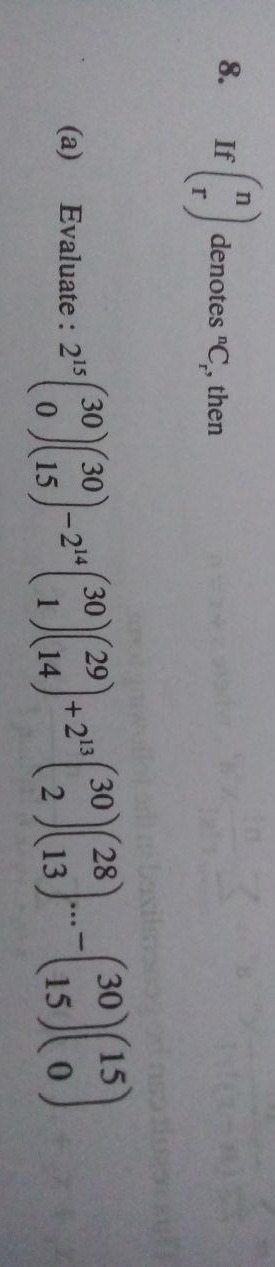 8. If (n r) denotes ⁿCᵣ, then
(a) Evaluate : 2¹⁵ (30 0)(30 15) − 2¹⁴ (30 1)(29 14) + 2¹³ (30 2)(28 13) ... − (30 15)(15 0)